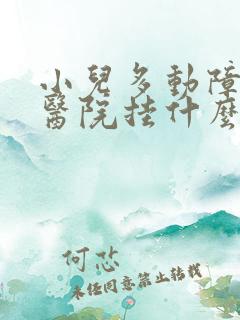 小兒多動障
醫院挂什麽
何芯
未經同意禁止轉載